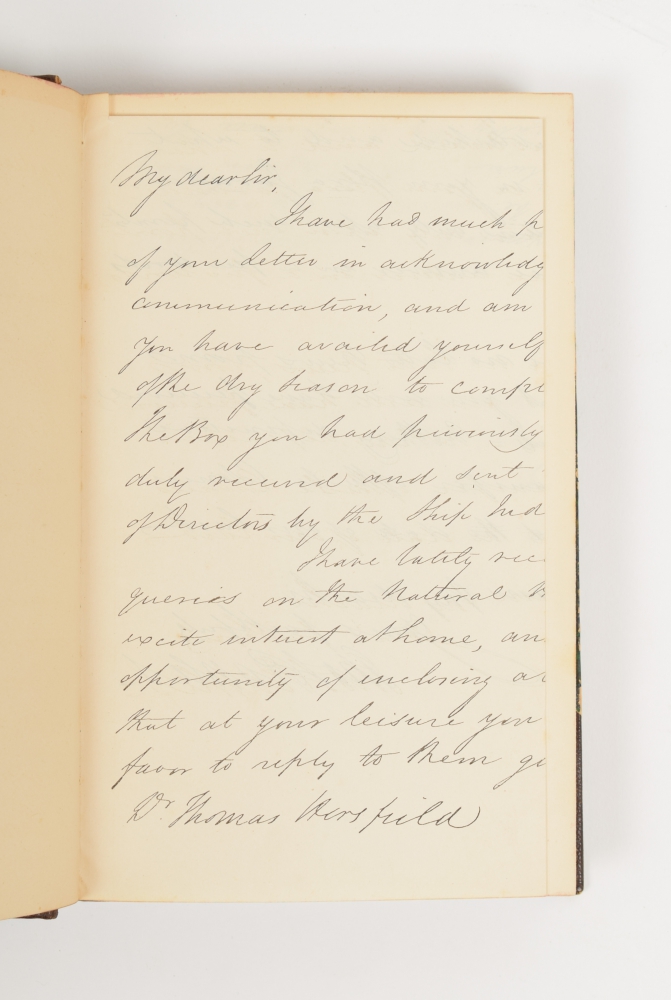 My dear Sir,
I have had much p
of your letter in acknowledg
communication, and am
you have availed yourself
of the dry season to comple
The Box you had previously
duly received and sent
of Directors by the Ship Ind
I have lately rec
queries on the Natural
excite interest at home, an
opportunity of enclosing a
that at your leisure you
favor to reply to them ge
Dr Thomas Horsfield